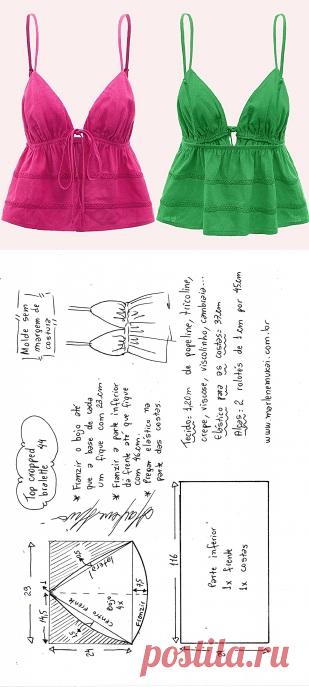 Molde sem
margem de
costura
Top cropped
bralette 44
* Franzir o bojo até
que a base de cada
um fique com 23cm.
* Franzir a parte inferior
da frente até que fique
com 46cm.
* Pregar elástico na
parte das costas.
Tecido: 1,20m de popeline, tricoline,
crepe, viscose, viscolinho, cambraia...
Elástico para as costas: 37cm
Alças: 2 rolotês de 1cm por 45cm
www.marlenemukai.com.br
29
14,5
lateral
Centro frente
bojo
4x
Franzir
7,5
24
116
Parte inferior
1x frente
1x costas
postila.ru